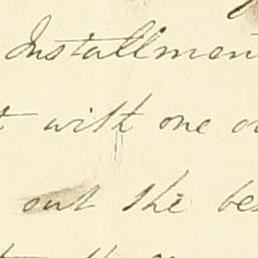 Installmen
t with one o
out the be